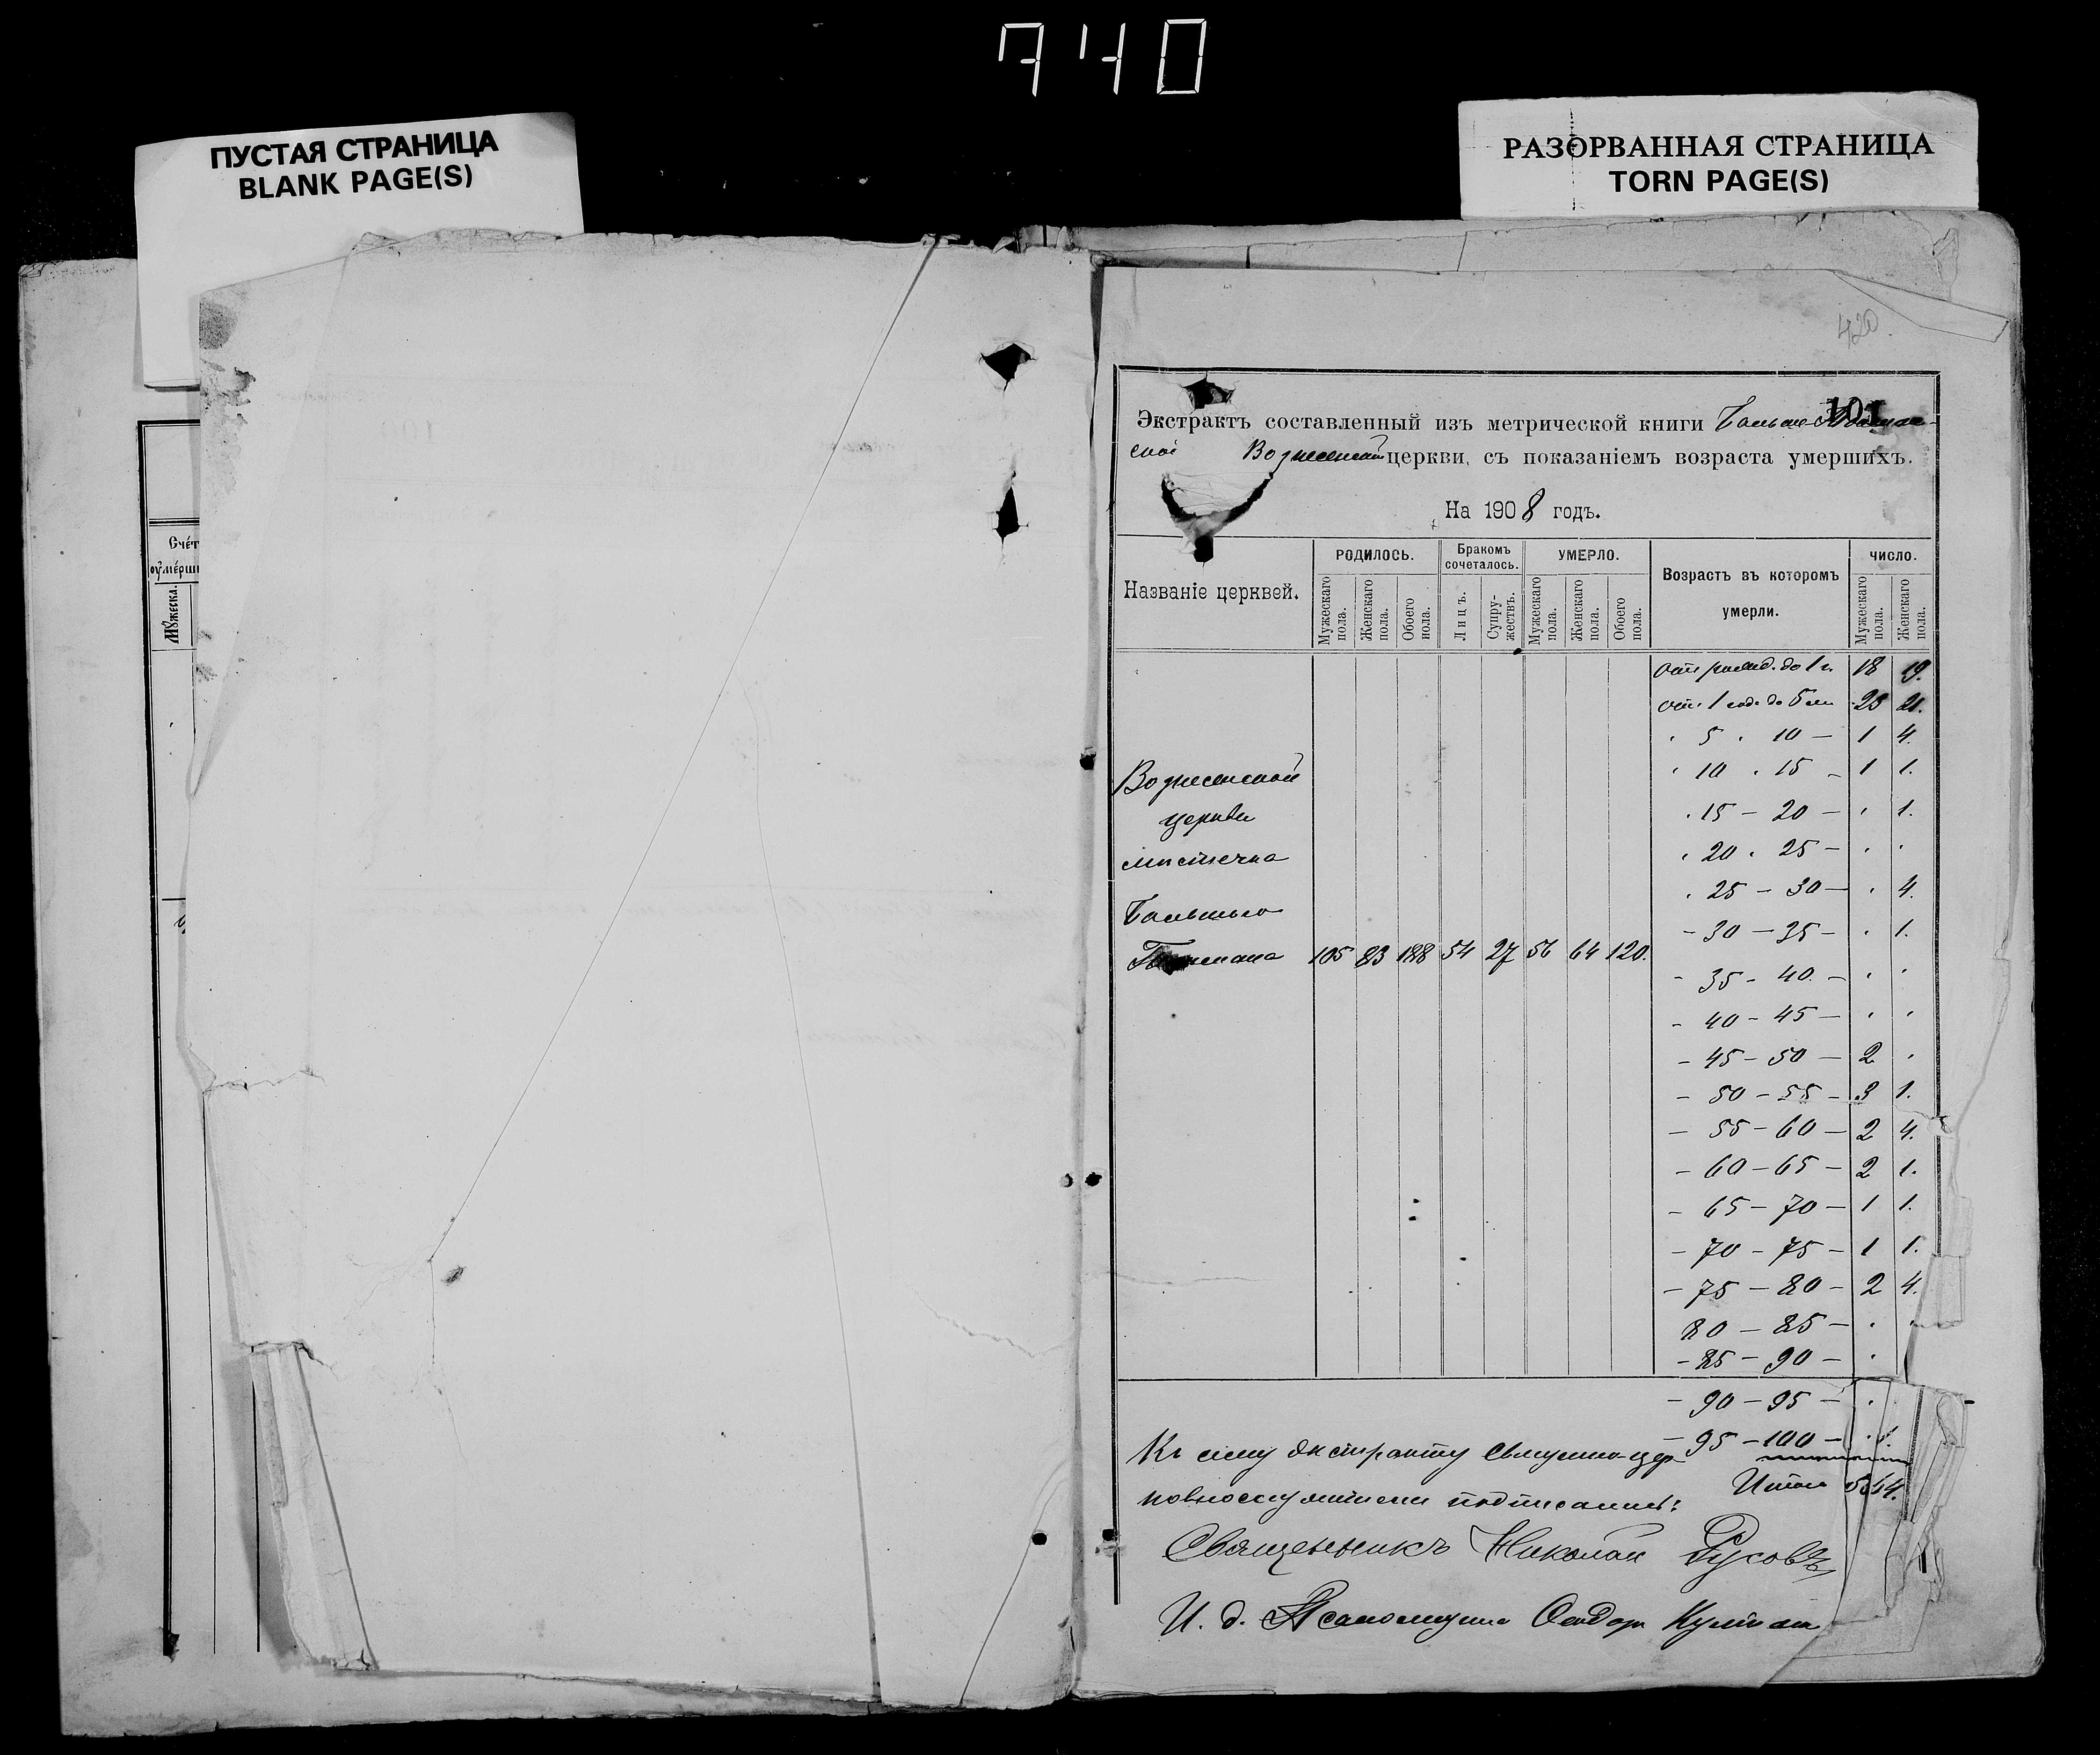 740
ПУСТАЯ СТРАНИЦА
BLANK PAGE(S)
РАЗОРВАННАЯ СТРАНИЦА
TORN PAGE(S)
Счéт
оумéрши
Мꙋжеска.
420.
101
Экстрактъ составленный изъ метрической книги Больше-
ской Вознесенской церкви, съ показаніемъ возраста умершихъ.
На 1908 годъ.
Названіе церквей.
РОДИЛОСЬ.
Бракомъ сочеталось.
УМЕРЛО.
Возрастъ въ которомъ умерли.
ЧИСЛО.
Мужескаго пола.
Женскаго пола.
Обоего пола.
Лицъ.
Супружествъ.
Мужескаго пола.
Женскаго пола.
Обоего пола.
Мужескаго пола.
Женскаго пола.
Отъ рожд. до 1 г. 18 19.
отъ 1 года до 5 23 21.
" 5 " 10 — 1 4.
" 10 " 15 — 1 1.
" 15 — 20 — " 1.
" 20 " 25 — " "
" 25 — 30 — " 4.
— 30 — 35 — " 1.
— 35 — 40 — " "
— 40 — 45 — " "
— 45 — 50 — 2 "
— 50 — 55 — 3 1.
— 55 — 60 — 2 4.
— 60 — 65 — 2 1.
— 65 — 70 — 1 1.
— 70 — 75 — 1 1.
— 75 — 80 — 2 4.
80 — 85 — " "
— 85 — 90 — "
— 90 — 95 — "
— 95 — 100 —
Итого 56 64.
Вознесенской
церкви
мѣстечка
Большого
105 83 188 54 27 56 64 120.
Къ сему экстракту священно-цер-
ковнослужители подписались:
Священникъ Николай
И. д. Псаломщика